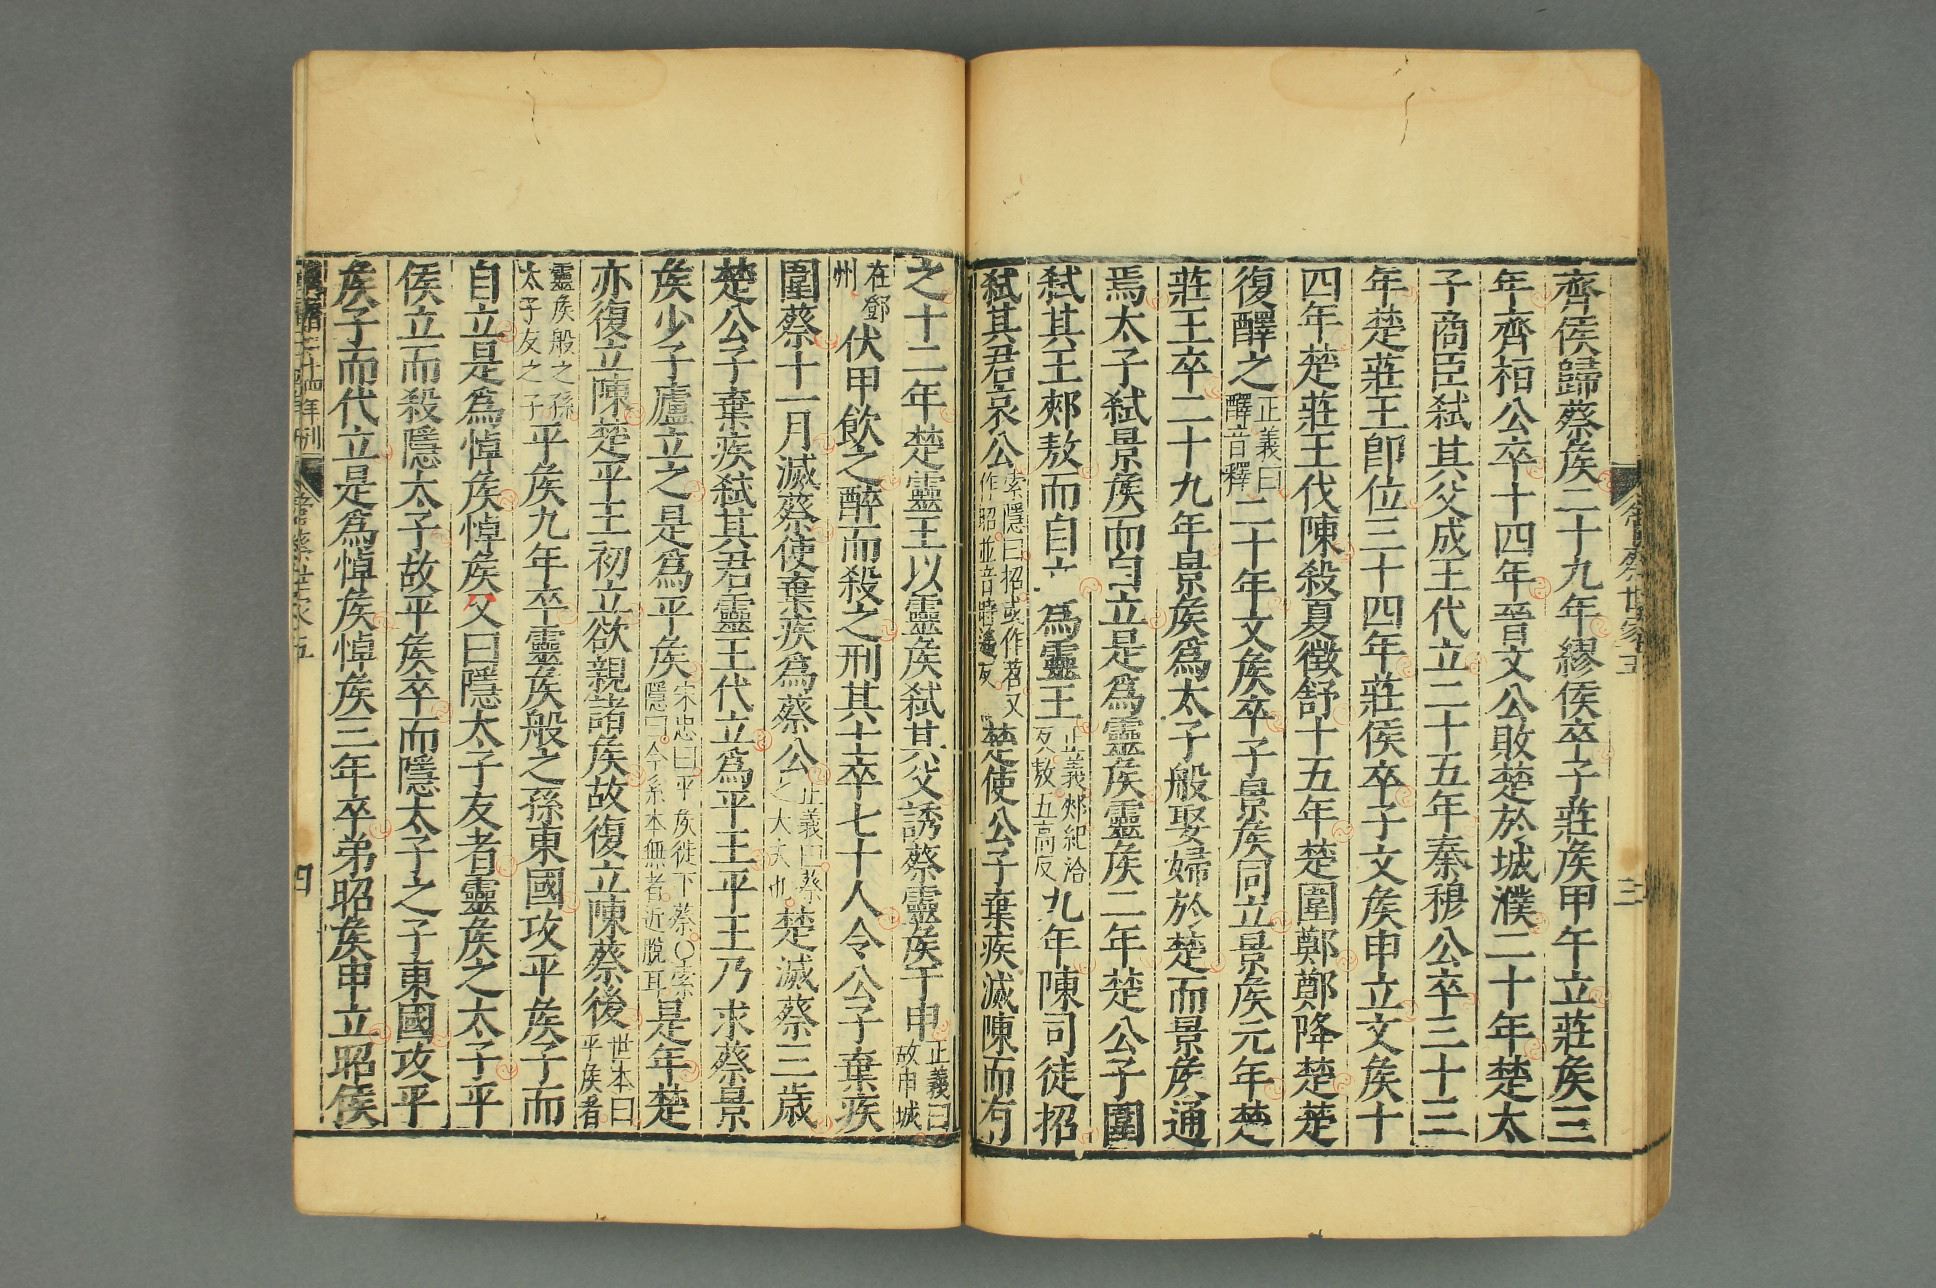 齊侯歸蔡矦二十九年繆侯卒子莊矦甲午立莊矦三
年齊桓公卒十四年晉文公敗楚於城濮二十年楚太
子商臣弑其父成王代立二十五年秦穆公卒三十三
年楚莊王即位三十四年莊侯卒子文矦申立文矦十
四年楚莊王伐陳殺夏徵舒十五年楚圍鄭鄭降楚楚
復醳之正義曰醳音釋二十年文矦卒子景矦同立景矦元年楚
莊王卒二十九年景矦爲太子般娶婦於楚而景矦通
焉太子弑景矦而自立是爲靈矦靈矦二年楚公子圍
弑其王郟敖而自立爲靈王正義郟紀洽反敖五高反九年陳司徒招
弑其君哀公索隱曰招或作苕又作昭並音時遙反楚使公子棄疾滅陳而有
蔡世家五
三
之十二年楚靈王以靈矦弑其父誘蔡靈矦于申正義曰故申城
在鄧州伏甲飲之醉而殺之刑其士卒七十人令公子棄疾
圍蔡十一月滅蔡使棄疾爲蔡公正義曰蔡之大夫也楚滅蔡三歲
楚公子棄疾弑其君靈王代立爲平王平王乃求蔡景
矦少子廬立之是爲平矦宋忠曰平矦徙下蔡○索隱曰今系本無者近脫耳是年楚
亦復立陳楚平王初立欲親諸矦故復立陳蔡後世本曰平矦者
靈矦般之孫太子友之子平矦九年卒靈矦般之孫東國攻平矦子而
自立是爲悼矦悼矦父曰隱太子友者靈矦之太子平
侯立而殺隱太子故平矦卒而隱太子之子東國攻平
矦子而代立是爲悼矦悼矦三年卒弟昭矦申立昭侯
四